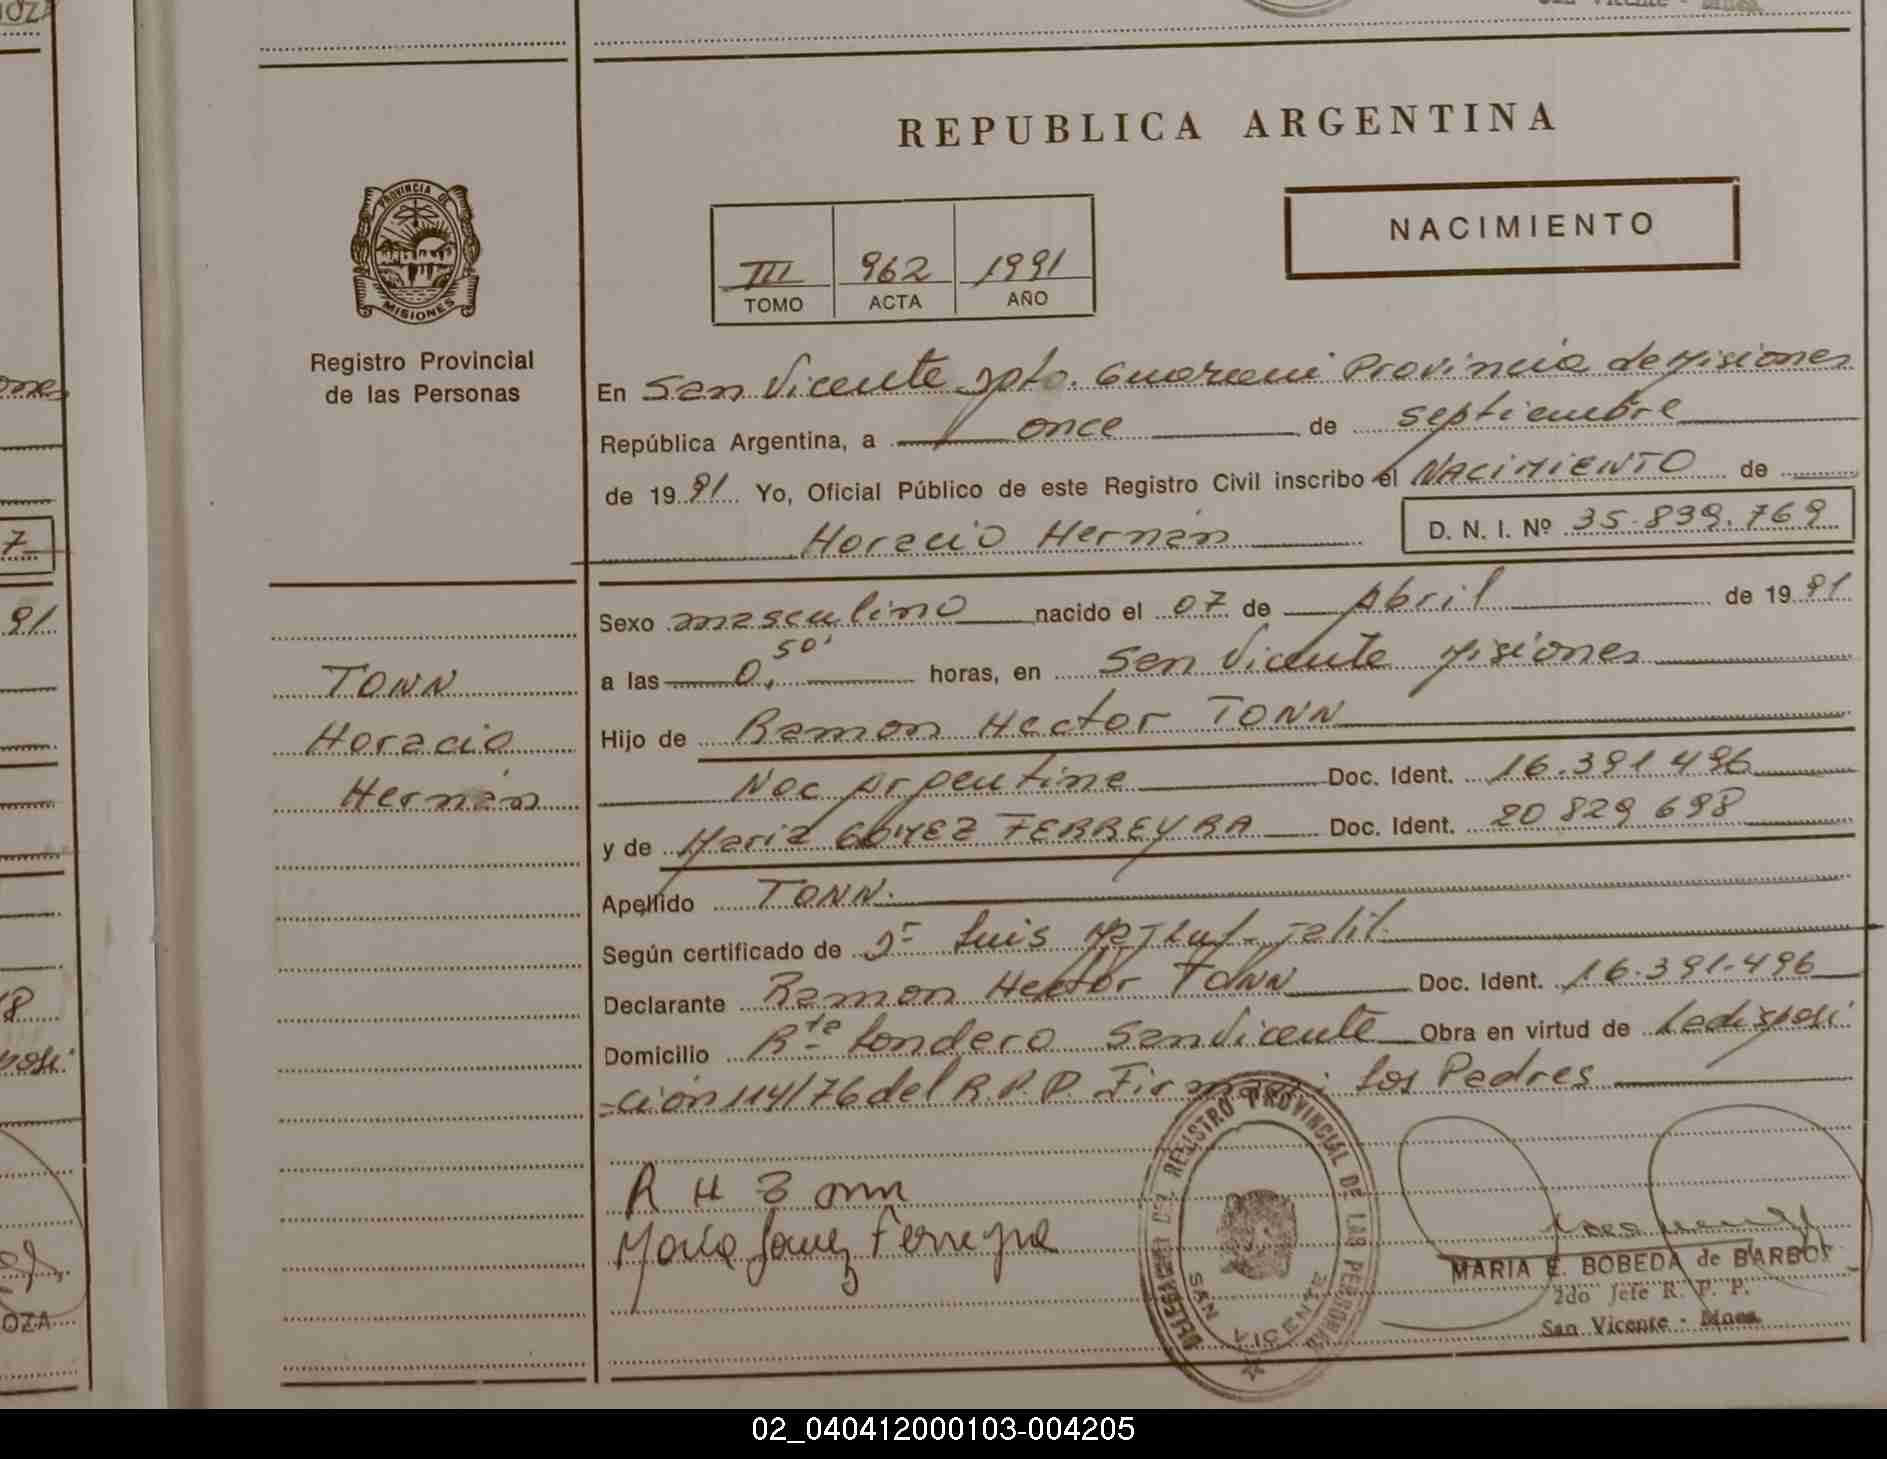 REPUBLICA ARGENTINA
PROVINCIA DE MISIONES
Registro Provincial
de las Personas
III 962 1991
TOMO ACTA AÑO
NACIMIENTO
En San Vicente Dpto. Guarani Provincia de Misiones
República Argentina, a once de septiembre
de 19 91 Yo, Oficial Público de este Registro Civil inscribo el NACIMIENTO de
Horacio Hernán D. N. I. Nº 35.839.769
TONN
Horacio
Hernán
Sexo masculino nacido el 07 de Abril de 19 91
a las 0,50' horas, en San Vicente Misiones
Hijo de Ramon Hector TONN
Nac Argentina Doc. Ident. 16.391.496
y de Maria GOMEZ FERREYRA Doc. Ident. 20 829 698
Apellido TONN.
Según certificado de Dr Luis
Declarante Ramon Hector TONN Doc. Ident. 16.391.496
Domicilio Rte Londero San Vicente Obra en virtud de la disposi
=ción 114/76 del R.P.P. Firman: los Padres
R H Tonn
Maria Gomez Ferreyra
DELEGACION DEL REGISTRO PROVINCIAL DE LAS PERSONAS
SAN VICENTE
MARIA E. BOBEDA de BARBO
2do Jefe R. P. P.
San Vicente - Mnes.
02_040412000103-004205